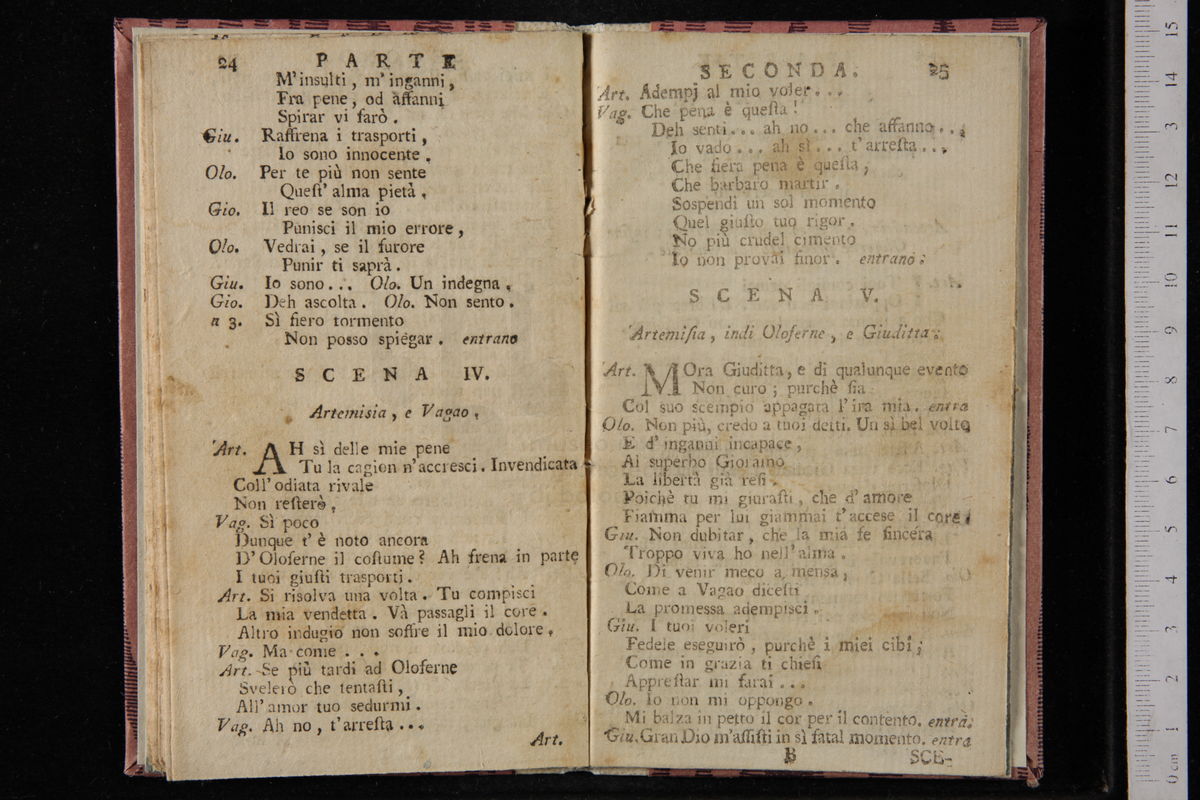 24 PARTE
M'insulti, m'inganni,
Fra pene, od affanni
Spirar vi farò.
Giu. Raffrena i trasporti,
Io sono innocente.
Olo. Per te più non sente
Queſt' alma pietà.
Gio. Il reo se son io
Punisci il mio errore,
Olo. Vedrai, se il furore
Punir ti saprà.
Giu. Io sono... Olo. Un indegna.
Gio. Deh ascolta. Olo. Non sento.
a 3. Sì fiero tormento
Non posso spiegar. entrano
SCENA IV.
Artemisia, e Vagao.
Art. AH sì delle mie pene
Tu la cagion n'accresci. Invendicata
Coll'odiata rivale
Non reſterò.
Vag. Sì poco
Dunque t'è noto ancora
D'Oloferne il coſtume? Ah frena in parte
I tuoi giuſti trasporti.
Art. Si risolva una volta. Tu compisci
La mia vendetta. Và passagli il core.
Altro indugio non soffre il mio dolore.
Vag. Ma come...
Art. Se più tardi ad Oloferne
Svelerò che tentaſti,
All'amor tuo sedurmi.
Vag. Ah no, t'arreſta...
Art.
SECONDA. 25
Art. Adempj al mio voler...
Vag. Che pena è queſta!
Deh senti... ah no... che affanno...
Io vado... ah sì... t'arreſta...
Che fiera pena è queſta,
Che barbaro martir.
Sospendi un sol momento
Quel giuſto tuo rigor.
No più crudel cimento
Io non provai finor. entrano.
SCENA V.
Artemiſia, indi Oloferne, e Giuditta.
Art. MOra Giuditta, e di qualunque evento
Non curo; purchè ſia
Col suo scempio appagata l'ira mia. entra
Olo. Non più, credo a tuoi detti. Un sì bel volto
E d'inganni incapace,
Al superbo Gioramo
La libertà già reſi.
Poichè tu mi giuraſti, che d'amore
Fiamma per lui giammai t'accese il core.
Giu. Non dubitar, che la mia fe ſincera
Troppo viva ho nell'alma.
Olo. Di venir meco a mensa,
Come a Vagao diceſti
La promessa adempisci.
Giu. I tuoi voleri
Fedele eseguirò, purchè i miei cibi,
Come in grazia ti chieſi
Appreſtar mi farai...
Olo. Io non mi oppongo.
Mi balza in petto il cor per il contento. entra.
Giu. Gran Dio m'aſſiſti in sì fatal momento. entra
B SCE-